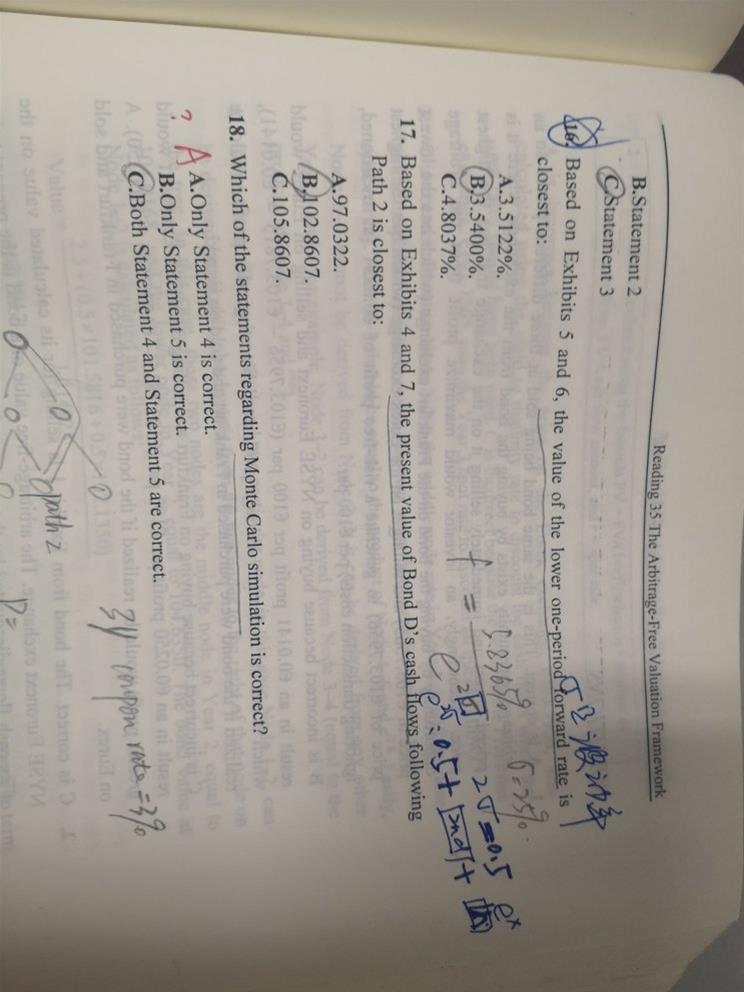 Reading 35 The Arbitrage-Free Valuation Framework
B.Statement 2
C.Statement 3
16. Based on Exhibits 5 and 6, the value of the lower one-period forward rate is
closest to:
σ是波动率
A.3.5122%.
B.3.5400%.
C.4.8037%.
f = 5.8365% / e^2σ
σ=25%.
2σ=0.5 e^x
e^2σ: 0.5+ 2nd + LN
17. Based on Exhibits 4 and 7, the present value of Bond D's cash flows following
Path 2 is closest to:
A.97.0322.
B.102.8607.
C.105.8607.
18. Which of the statements regarding Monte Carlo simulation is correct?
? A
A.Only Statement 4 is correct.
B.Only Statement 5 is correct.
C.Both Statement 4 and Statement 5 are correct.
3y coupon rate=3%
path 2
P=